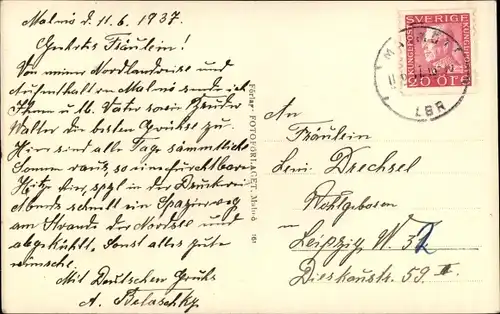 Malmö d. 11.6.1937.
Geehrtes Fräulein!
Von meiner Nordlandreise und
Aufenthalt in Malmö sende ich
Ihnen u. Vater sowie Bruder
Walter die besten Grüße zu.
Hier sind alle Tage sämmtliche
so eine furchtbare
Hitze hier, in der Druckerei
Abends schnell ein Spazierweg
am Strande der Nordsee und
abgekühlt. Sonst alles gute
wünsche.
Mit Deutschen Gruß
A.
Förlag: FOTOFÖRLAGET, Malmö
SVERIGE
KUNGSPOST
20 ÖRE
MALMÖ
LBR
An
Fräulein
Leni Drechsel
Wohlgeboren
Leipzig W. 32
Dieskaustr. 59 II.